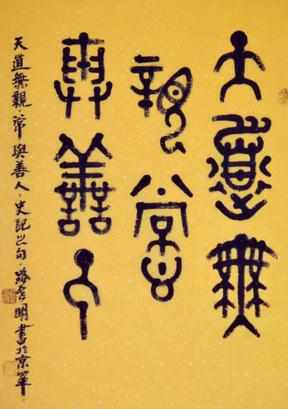 天道無
親常
與善人
天道無親·常與善人·史記之句·明書於京華